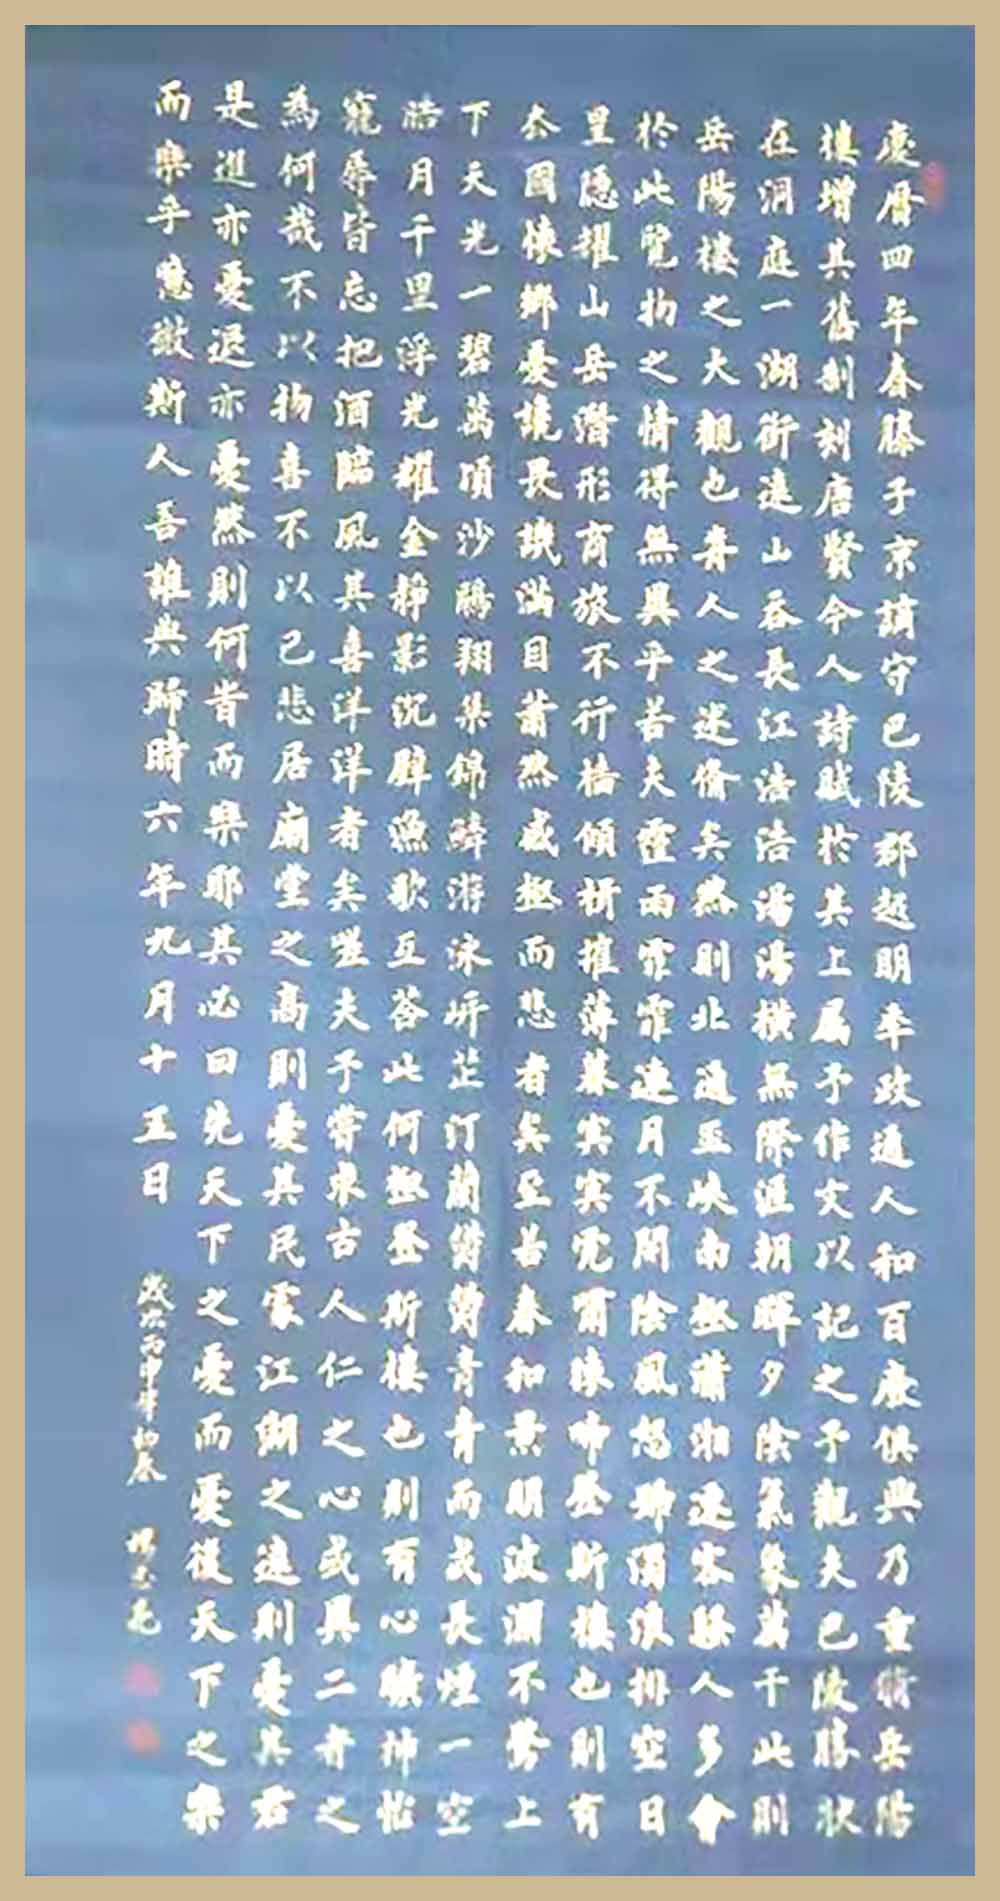 慶曆四年春滕子京謫守巴陵郡越明年政通人和百廢俱興乃重脩岳陽
樓增其舊制刻唐賢今人詩賦於其上屬予作文以記之予觀夫巴陵勝狀
在洞庭一湖銜遠山吞長江浩浩湯湯橫無際涯朝暉夕陰氣象萬千此則
岳陽樓之大觀也前人之述備矣然則北通巫峽南極瀟湘遷客騷人多會
於此覽物之情得無異乎若夫霪雨霏霏連月不開陰風怒號濁浪排空日
星隱耀山岳潛形商旅不行檣傾楫摧薄暮冥冥虎嘯猿啼登斯樓也則有
去國懷鄉憂讒畏譏滿目蕭然感極而悲者矣至若春和景明波瀾不驚上
下天光一碧萬頃沙鷗翔集錦鱗游泳岸芷汀蘭鬱鬱青青而或長煙一空
皓月千里浮光耀金靜影沉璧漁歌互答此何極登斯樓也則有心曠神怡
寵辱皆忘把酒臨風其喜洋洋者矣嗟夫予嘗求古人仁之心或異二者之
為何哉不以物喜不以己悲居廟堂之高則憂其民處江湖之遠則憂其君
是進亦憂退亦憂然則何時而樂耶其必曰先天下之憂而憂後天下之樂
而樂乎噫微斯人吾誰與歸時六年九月十五日
歲次丙申年初春